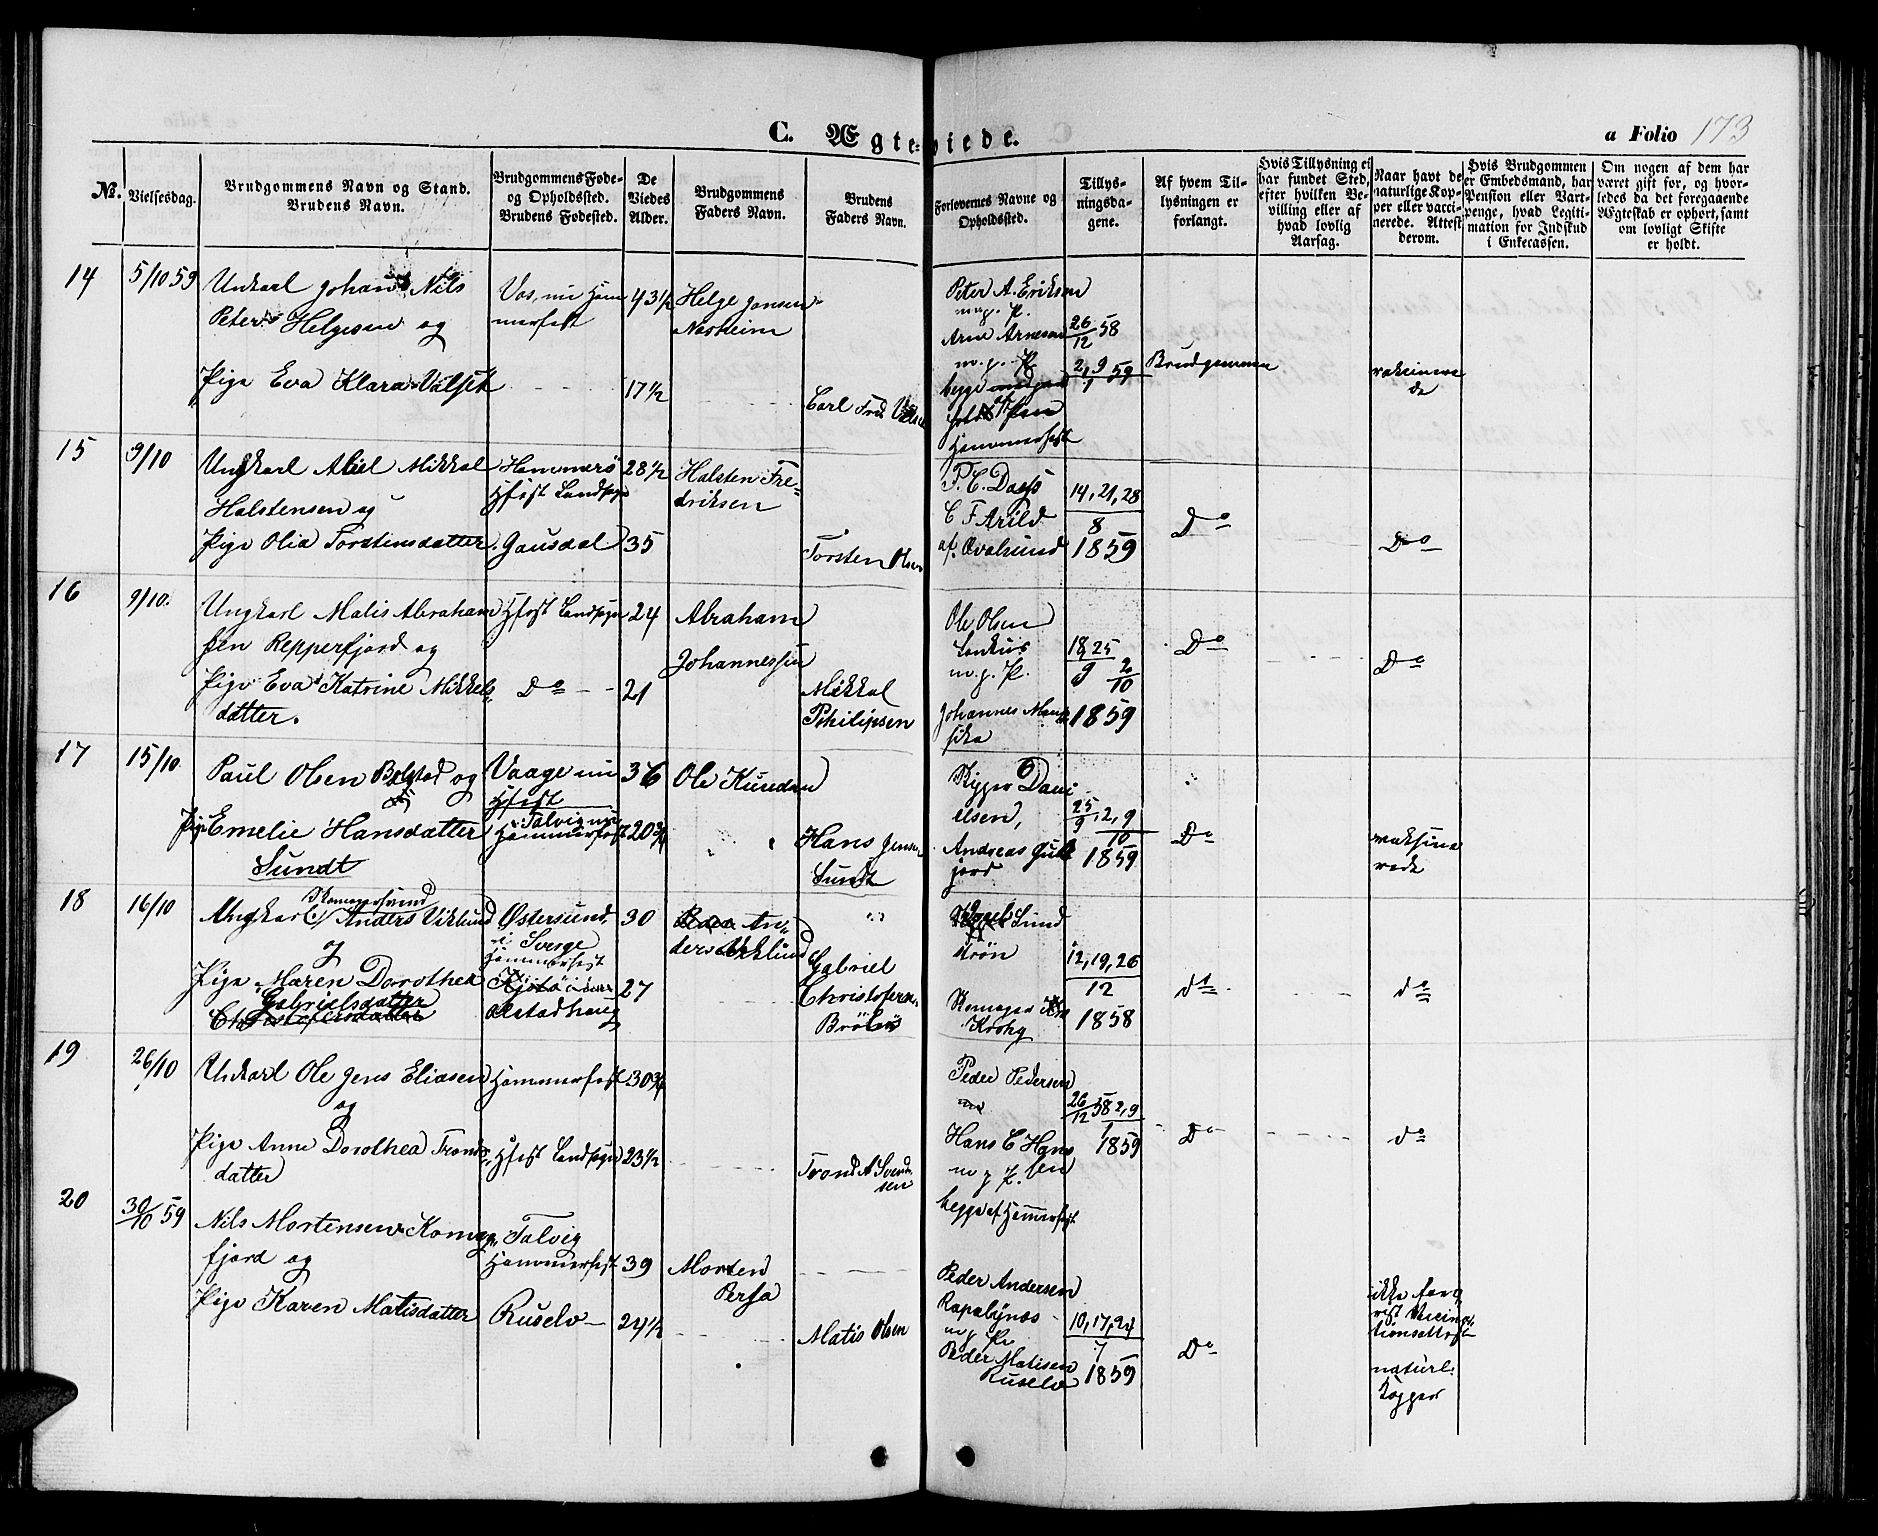 C. Ægteviede.
a Folio 173
No.
Vielsesdag.
Brudgommens Navn og Stand.
Brudens Navn.
Brudgommens Føde-
og Opholdssted.
Brudens Fødested.
De
Viedes
Alder.
Brudgommens
Faders Navn.
Brudens
Faders Navn.
Forlovernes Navne og
Opholdssted.
Tillys-
ningsda-
gene.
Af hvem Til-
lysningen er
forlangt.
Hvis Tillysning ei
har fundet Sted,
efter hvilken Be-
villing eller af
hvad lovlig
Aarsag.
Naar havt de
naturlige Kop-
per eller vacci-
nerede. Attest
derom.
Hvis Brudgommen
er Embedsmand, har
Pension eller Vart-
penge, hvad Legiti-
mation for Indskud
i Enkecassen.
Om nogen af dem har
været gift for, og hvor-
ledes da det foregaaende
Ægteskab er ophørt, samt
om lovligt Skifte
er holdt.
14
5/10 59
Unkarl Johan Nils
Peter Helgesen og
Pige Eva Klara
Vos, nu Ham
merfest
43½
17½
Helge Jonsen
Carl Fred
Peter A. Eriksen
m. p. P.
Arne Arnesen
m. p. P.
begge
Hammerfest
26/12 58
2, 9/1 59
Brudgommen
vakcinere
de
15
9/10
Ungkarl Abel Mikkal
Halstensen og
Pige Olia Torstensdatter
Hammerø
Hfest Landsogn
Gausdal
28½
35
Halsten Fre-
driksen
Torsten Olsen
P. C. Dass
C F Arild
af Qvalsund
14, 21, 28
8
1859
Do
Do
16
9/10.
Ungkarl Matis Abraham
sen Repperfjord og
Pige Eva Katrine Mikkels-
datter.
Hfest Landsogn
Do
24
21
Abraham
Johannessen
Mikkal
Philipsen
Ole Olsen
m. p. P.
Johannes
18, 25
9 2/10
1859
Do
Do
17
15/10
Paul Olsen og
Pige Emelie Hansdatter
Sundt
Vaage nu
Hfest
Talvig nu
Hammerfest
36
20¾
Ole Knudsen
Hans Jensen
Sundt
Skipper Dani
elsen,
Andreas
jord
25/9, 2, 9
10
1859
Do
vaksine
rede
18
16/10
Ungkarl Anders Viklund
og
Pige Maren Dorothea
Gabrielsdatter
Christofersdatter
Østersund
i Sverge
Hammerfest
Alstadhaug
30
27
An-
ders Viklund
Gabriel
Christofersen
Lund
Krohg
12, 19, 26
12
1858
do
do
19
26/10
Unkarl Ole Jens Eliasen
og
Pige Anne Dorothea Tronds-
datter
Hammerfest
Hfest Landsogn
30¾
23½
Trond A Svend-
sen
Peder Pedersen
Hans C Hans
sen
m p P.
begge af Hammerfest
26/12 58 2, 9
1
1859
Do
do
20
30/10 59
Nils Mortensen Komag-
fjord og
Pige Karen Matisdatter
Talvig
Hammerfest
Ruselv
39
24½
Morten
Persa
Matis Olsen
Peder Andersen
m. p. P.
Peder Matisen
Ruselv
10, 17, 24
7
1859
Do
ikke fore
vist Vaccina-
tionsattest
naturl.
Kopper